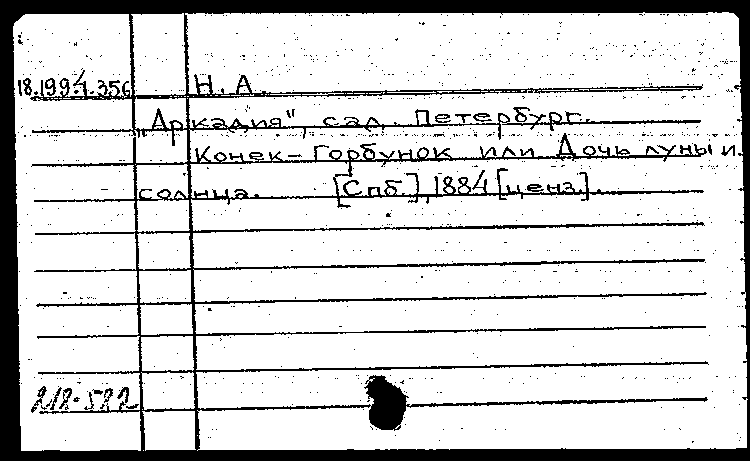 18.199.4.356 Н. А.
„Аркадия", сад. Петербург.
Конек-Горбунок или Дочь луны и
солнца. [Спб.], 1884 [ценз.].
212-522